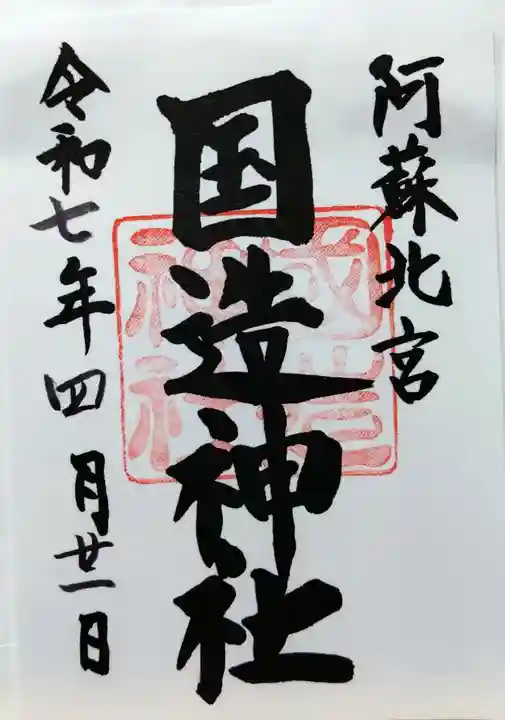 阿蘇北宮
国造神社
國造神社
令和七年四月廿一日